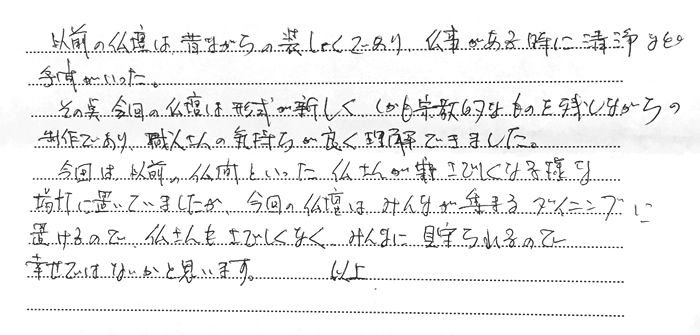 以前の仏壇は昔ながらの装しょくであり 仏事がある時に清浄など
手間がいった。
その点 今回の仏壇は形式が新しく しかも宗教的なものを残しながらの
制作であり、職人さんの気持ちが良く理解できました。
今回は以前の仏間といった 仏さんが さびしくなる様な
場所に置いていましたが、今回の仏壇は みんなが集まる ダイニングに
置けるので 仏さんもさびしくなく みんなに 見守られるので
幸せではないかと思います。 以上